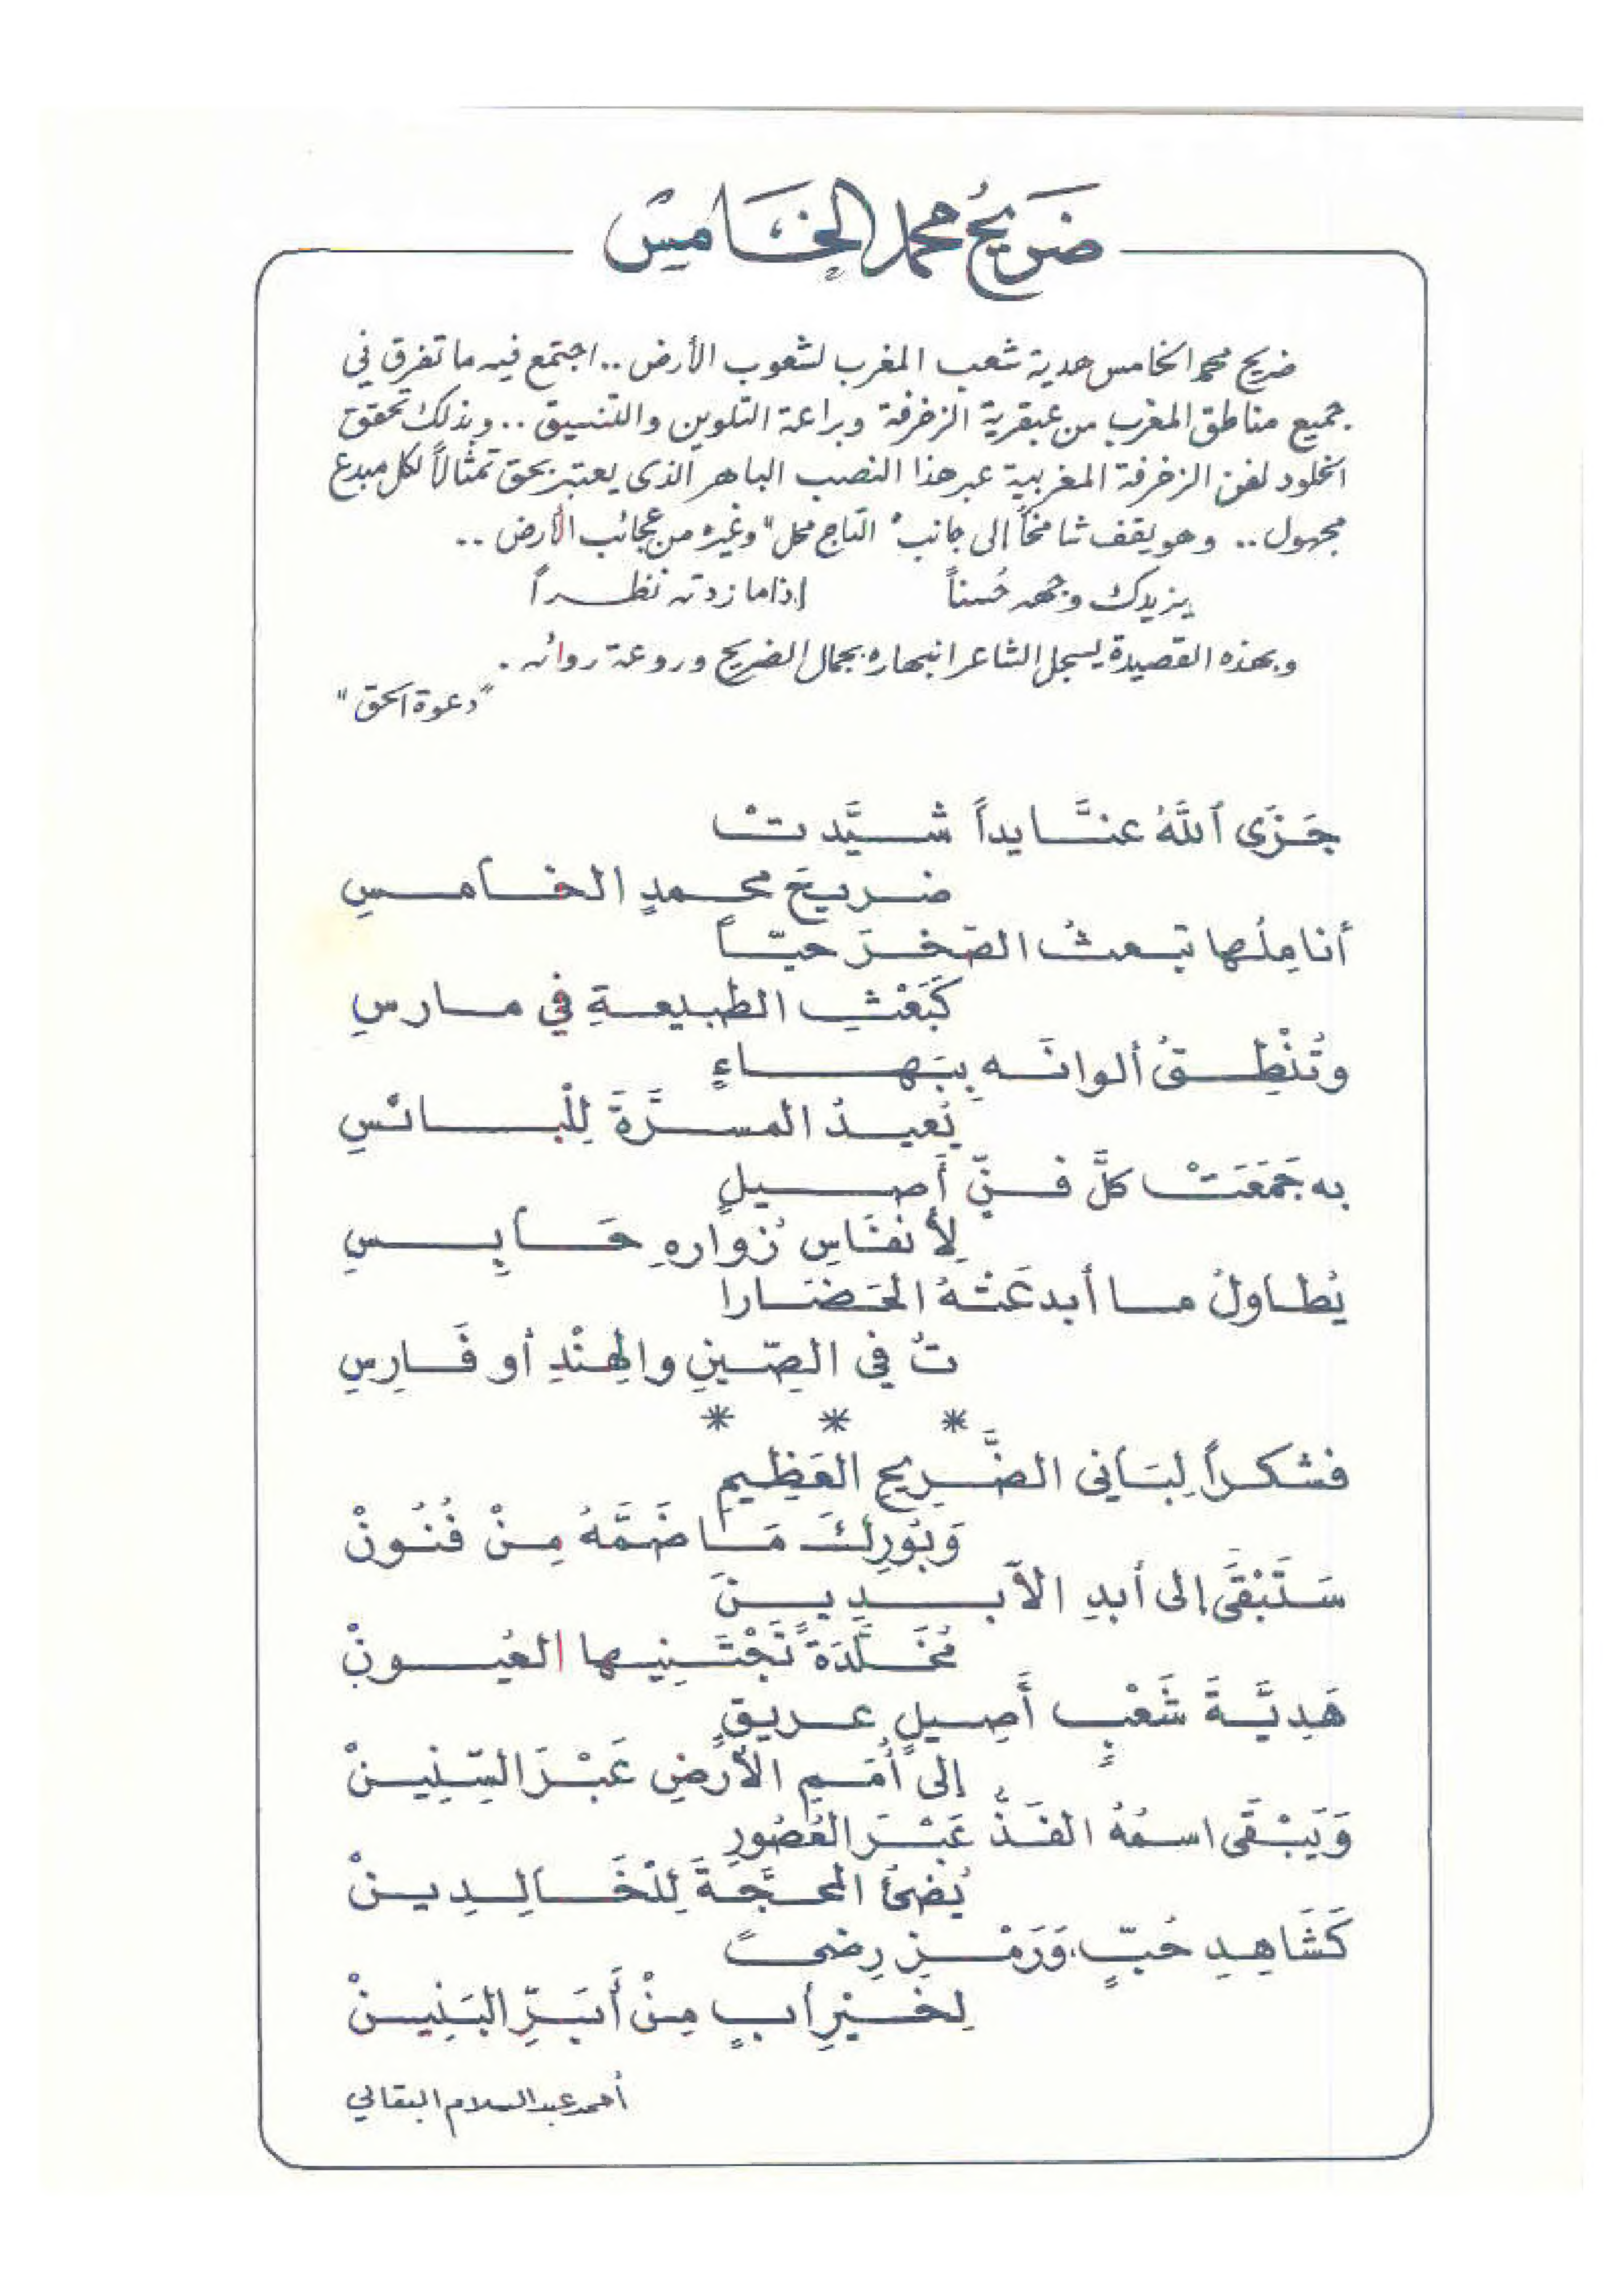 ضَرِيحُ محمد الخَامِسْ
ضريح محمد الخامس هدية شعب المغرب لشعوب الأرض .. اجتمع فيه ما تفرق في
جميع مناطق المغرب من عبقرية الزخرفة وبراعة التلوين والتنسيق .. وبذلك تحقق
الخلود لفن الزخرفة المغربية عبر هذا النصب الباهر الذى يعتبر بحق تمثالاً لكل مبدع
مجهول .. وهو يقف شامخاً إلى جانب "التاج محل" وغيره من عجائب الأرض ..
يزيدك وجهه حُسناً إذا ما زدته نظراً
وبهذه القصيدة يسجل الشاعر انبهاره بجمال الضريح وروعة روائه .
"دعوة الحق"
جَزَى ٱللَّهُ عنَّا يداً شيَّدتْ
ضريحَ محمدٍ الخامسِ
أنامِلُها تبعثُ الصّخرَ حيّاً
كَبَعْثِ الطبيعةِ في مارسِ
وتُنْطِقُ ألوانَه بِبَهاءٍ
يُعيدُ المسرَّةَ لِلْبائسِ
به جَمَعَتْ كلَّ فنٍّ أَصيلٍ
لِأنفَاسِ زُوّارِهِ حَابِسِ
يُطاولُ ما أبدعَتْهُ الحَضَارا
تُ في الصِّينِ والهِنْدِ أو فَارِسِ
* * *
فشكراً لِبَانى الضَّرِيحِ العَظِيمِ
وَبُورِكَ مَا ضَمَّهُ مِنْ فُنُونْ
سَتَبْقَى إلى أبدِ الآبدِينَ
مُخَلَّدَةً تَجْتَنِيها العُيونْ
هَدِيَّةَ شَعْبٍ أَصِيلٍ عريقٍ
إلى أُمَمِ الأَرْضِ عَبْرَ السِّنِينْ
وَيَبْقَى اسمُهُ الفَذُّ عَبْرَ العُصُورِ
يُضئُ المحَجَّةَ لِلْخَالِدِينْ
كَشَاهِدِ حُبٍّ، وَرَمْزِ رِضىً
لِخَيْرِ أبٍ مِنْ أَبَرِّ البَنِينْ
أحمد عبد السلام البقالي